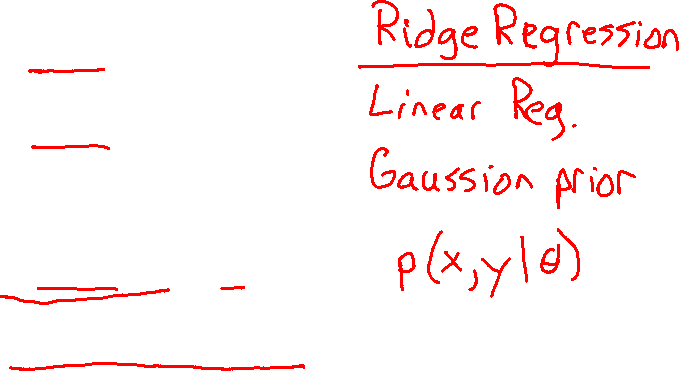 Ridge Regression
Linear Reg.
Gaussion prior
p(x,y|θ)